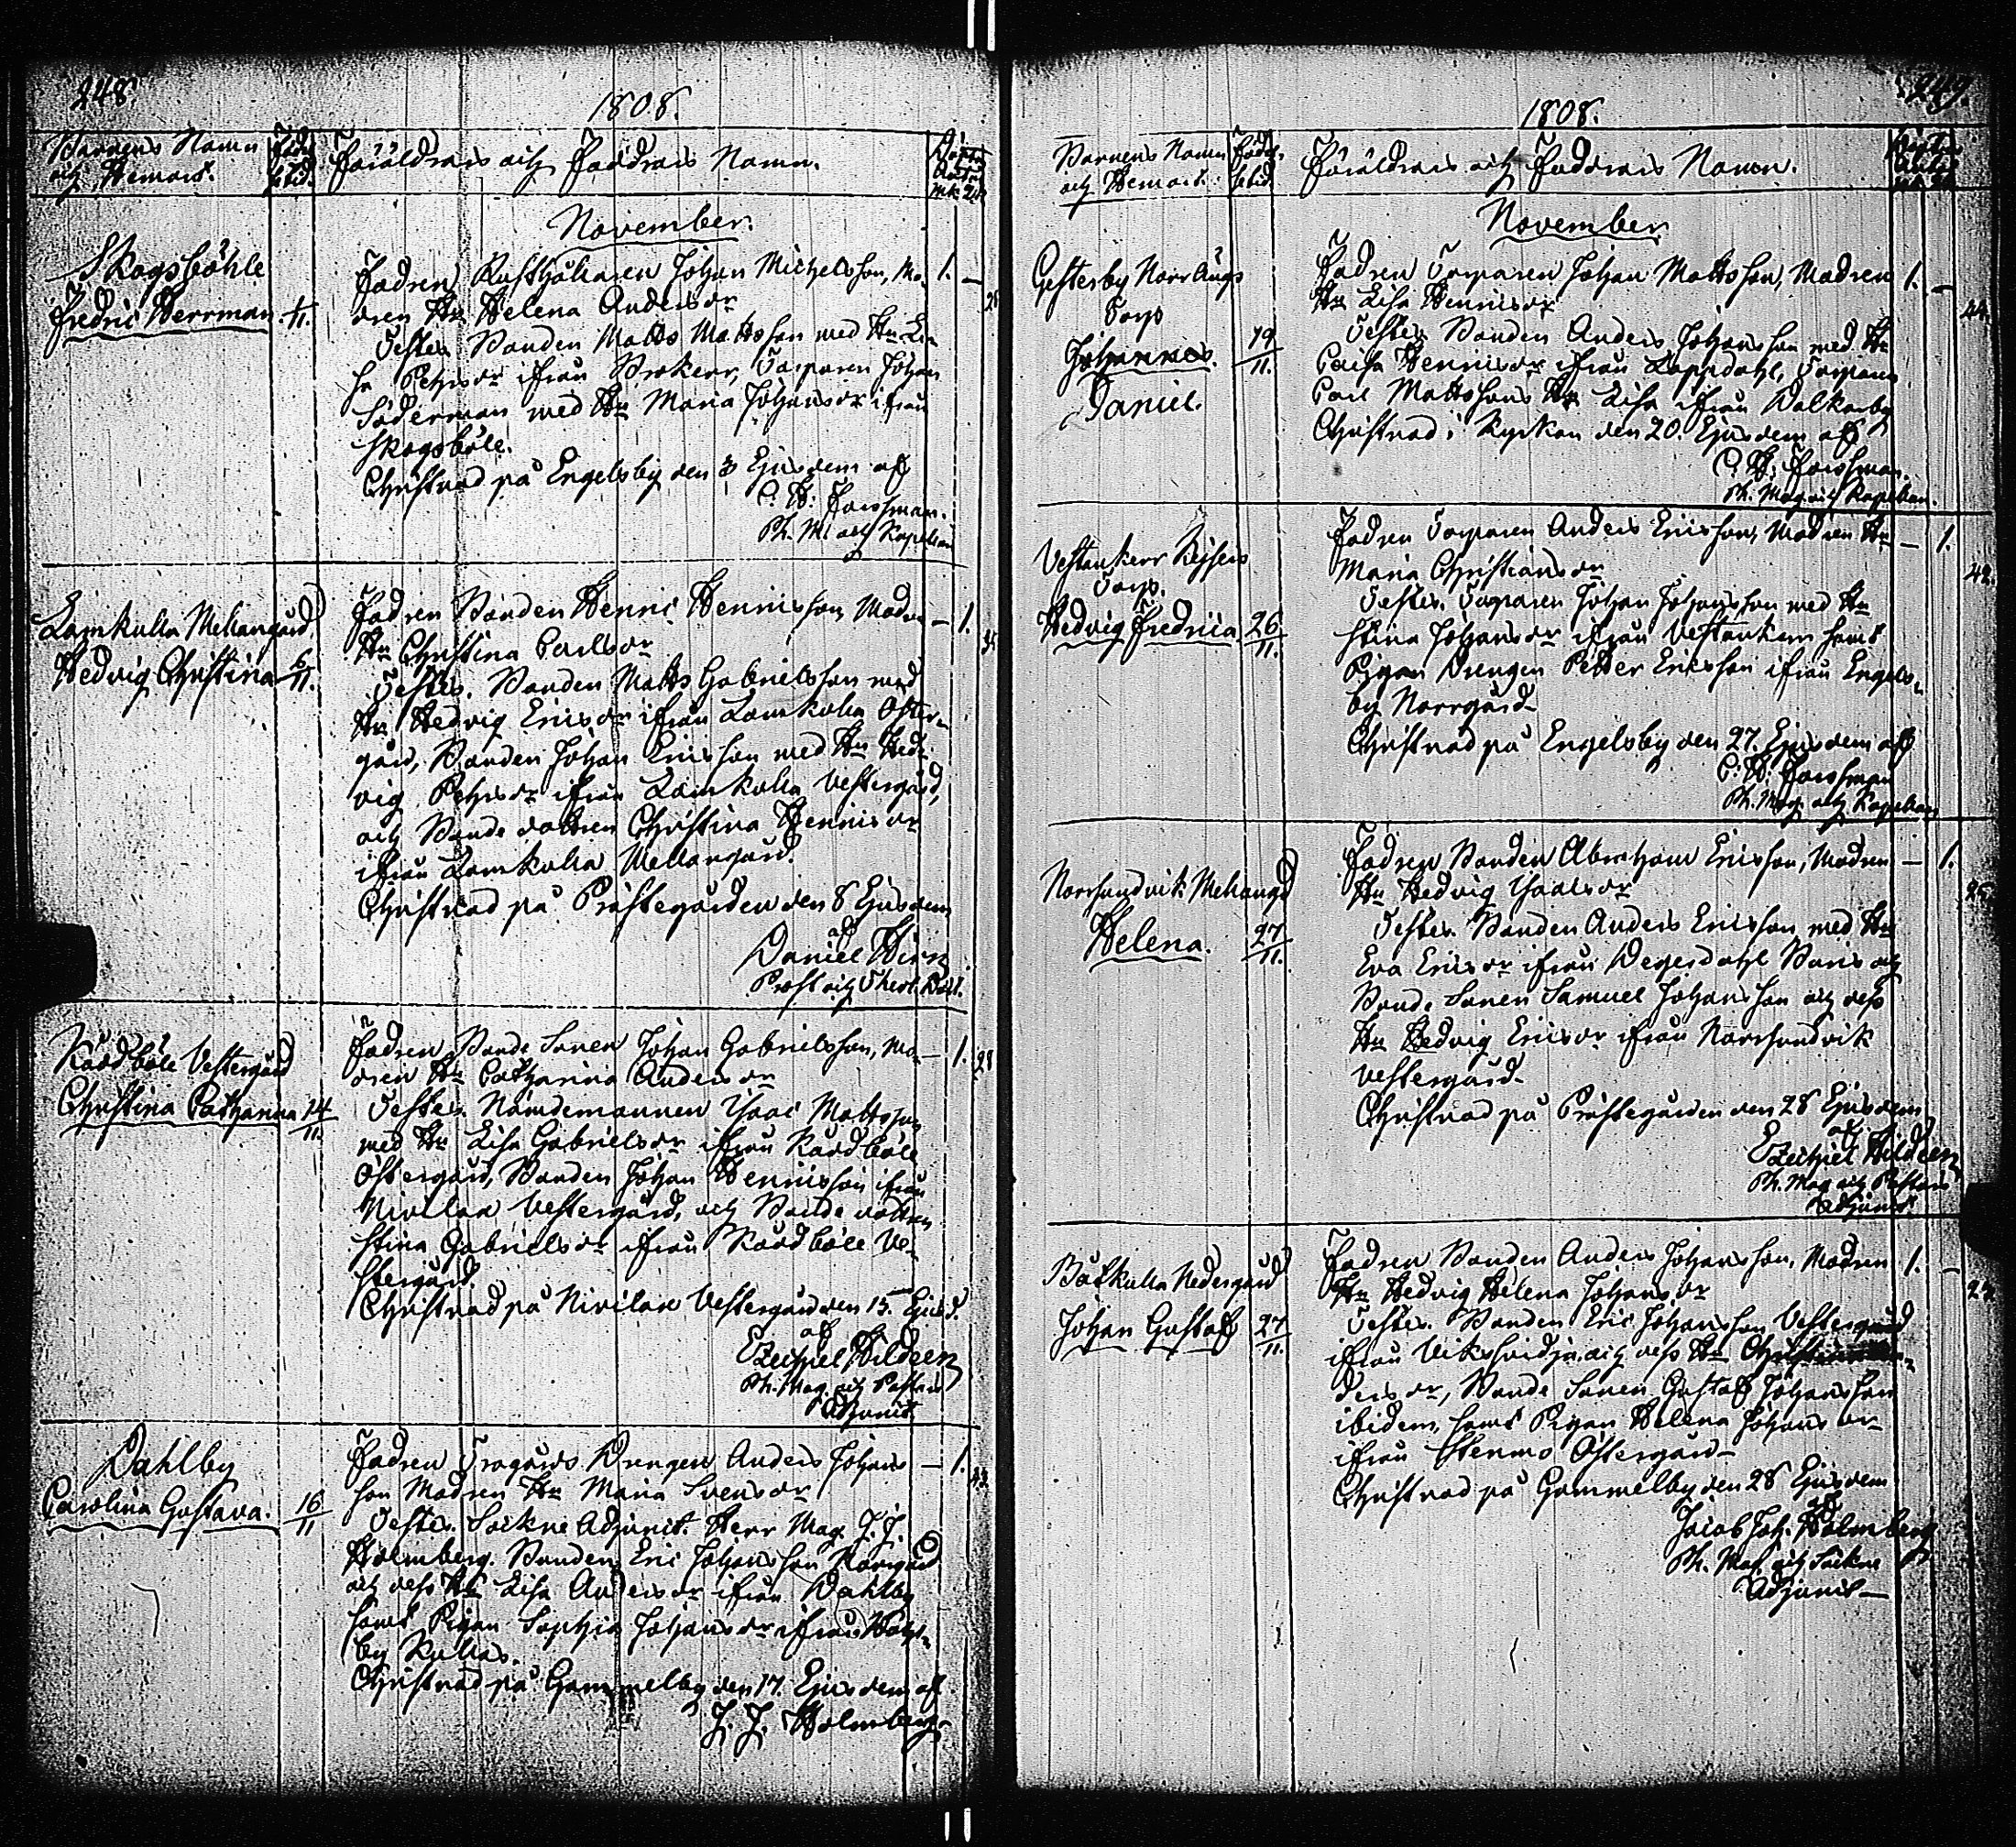 248.
1808.
Barnens Namn
och Hemort.
Föräldrars och Faddrars Namn.
November.
Skogsböhle
Fredric Herrman
1/11.
Fadren Rusthållaren Johan Michelsson, Mo-
dren Hu Helena Andersdr
1.
Testes. Bonden Matts Mattsson med Hu Li-
sa Pehrsdr ifrån Brokerr, Torparen Johan
Söderman med Hu Maria Johansdr ifrån
Skogsböle.
Christnad på Engelsby den 3 Ejusdem af
C. H. Forssman.
Ph. M. och Kapellan
Lamkulla Mellangård
Hedvig Christina
6/11.
Fadren Bonden Henric Henricsson, Modren
Hu Christina Carlsdr
1.
Testes. Bonden Matts Gabrielsson med
Hu Hedvig Ericsdr ifrån Lamkulla Öster-
gård, Bonden Johan Ericsson med Hu Hed-
vig Pehrsdr ifrån Lamkulla Vestergård,
och Bonde dottren Christina Henricsdr
ifrån Lamkulla Mellangård.
Christnad på Prästegården den 8 Ejusdem
af
Daniel Hirn
Prost och
Kårdböle Vestergård
Christina Catharina
14/11.
Fadren Bonde Sonen Johan Gabrielsson, Mo-
dren Hu Catharina Andersdr
1.
28
Testes. Nämdemannen Isaac Mattsson
med Hu Lisa Gabrielsdr ifrån Kårdböle
Östergård, Bonden Johan Henricsson ifrån
Nivilax Vestergård, och Bonde dottren
Stina Gabrielsdr ifrån Kårdböle Ve-
stergård.
Christnad på Nivilax Vestergård den 15. Ejusd.
af
Ezechiel Hildeen
Ph. Mag. och Pastors
Adjunct.
Dahlby
Carolina Gustava.
16/11
Fadren Tragårds Drengen Anders Johans-
son Modren Hu Maria Svensdr
1.
Testes. Sockne Adjunct. Herr Mag. J. J.
Holmberg. Bonden Eric Johansson Norrgård
och dess Hu Lisa Andersdr ifrån Dahlby
samt Pigan Sophia Johansdr ifrån
by Kullas.
Christnad på Gammelby den 17. Ejusdem af
J. J. Holmberg.
249.
1808.
Barnens Namn
och Hemort.
Föräldrars och Faddrars Namn.
November
Gesterby Norrängs
Torp
Johannes.
Daniel.
19/11.
Fadren Torparen Johan Mattsson, Modren
Hu Lisa Henricsdr
1.
Testes. Bonden Anders Johansson med Hu
Caisa Henricsdr ifrån Lappdahl, Torparen
Carl Mattssons Hu Lisa ifrån Valkarby
Christnad i Kyrkan den 20. Ejusdem af
C. H. Forssman.
Ph. Mag. och Kapellan.
Vestankerr
Torp.
Hedvig Fredrica
26/11.
Fadren Torparen Anders Ericsson, Modren Hu
Maria Christiansdr
1.
Testes. Torparen Johan Johansson med Hu
Stina Johansdr ifrån Vestankerr samt
Drengen Petter Eriksson ifrån Engels-
by Norrgård
Christnad på Engelsby den 27. Ejusdem af
C. H. Forssman
Ph. Mag. och Kapellan
Norrsundvik Mellangd
Helena.
27/11.
Fadren Bonden Abraham Ericsson, Modren
Hu Hedvig Isaacsdr
1.
25.
Testes. Bonden Anders Ericsson med Hu
Eva Ericsdr ifrån Degerdahl och
Bonde Sonen Samuel Johansson och dess
Hu Hedvig Ericsdr ifrån Norrsundvik
Vestergård.
Christnad på Prästegården den 28 Ejusdem
af
Ezechiel Hildeen
Ph. Mag och Pastors
Adjunct.
Båtkulla Nedergård
Johan Gustaf
27/11.
Fadren Bonden Anders Johansson, Modren
Hu Hedvig Helena Johansdr
1.
Testes. Bonden Eric Johansson Vestergård
ifrån Vikskidja och dess Hu
dersdr, Bonde Sonen Gustaf Johansson
ibidem, samt Pigan Helena Johansdr
ifrån Stenmo Östergård
Christnad på Gammelby den 28 Ejusdem
af
Jacob Joh. Holmberg
Ph. Mag. och Sockne
Adjunct